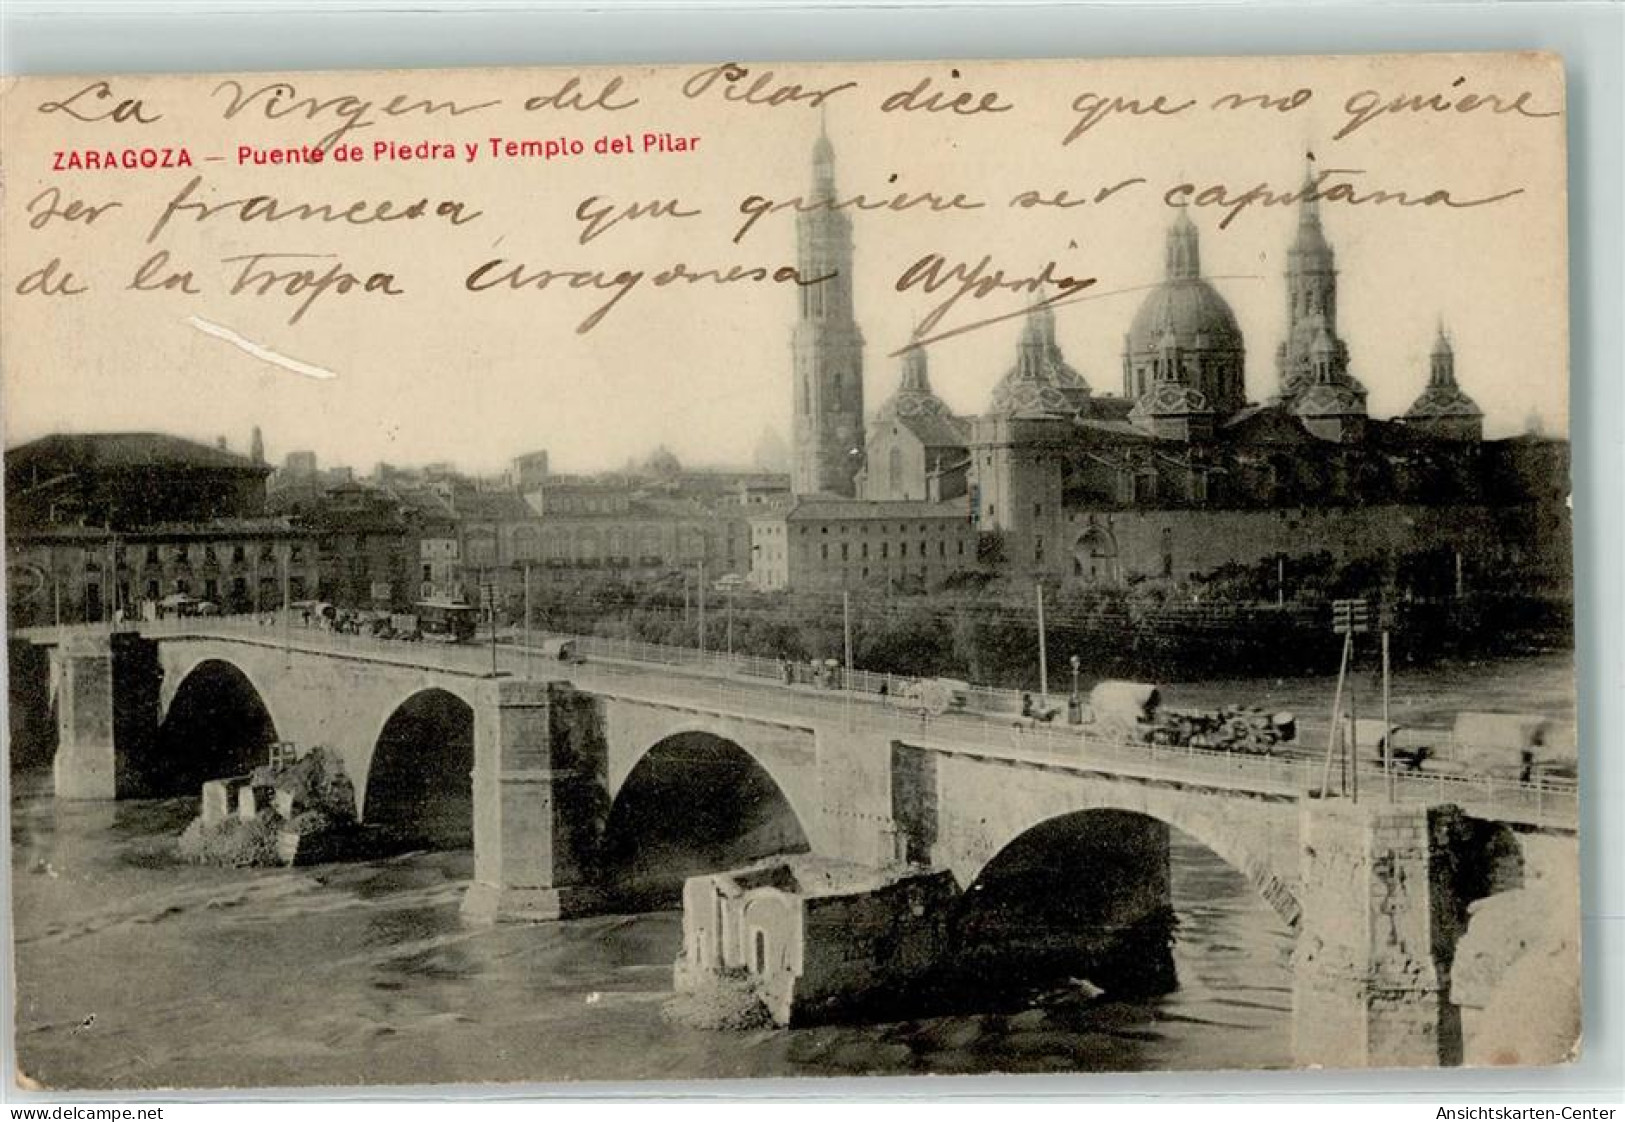 La Virgen del Pilar dice que no quiere
ZARAGOZA — Puente de Piedra y Templo del Pilar
ser francesa, que quiere ser capitana
de la tropa aragonesa
AK-carten.de
Ansichtskarten-Center